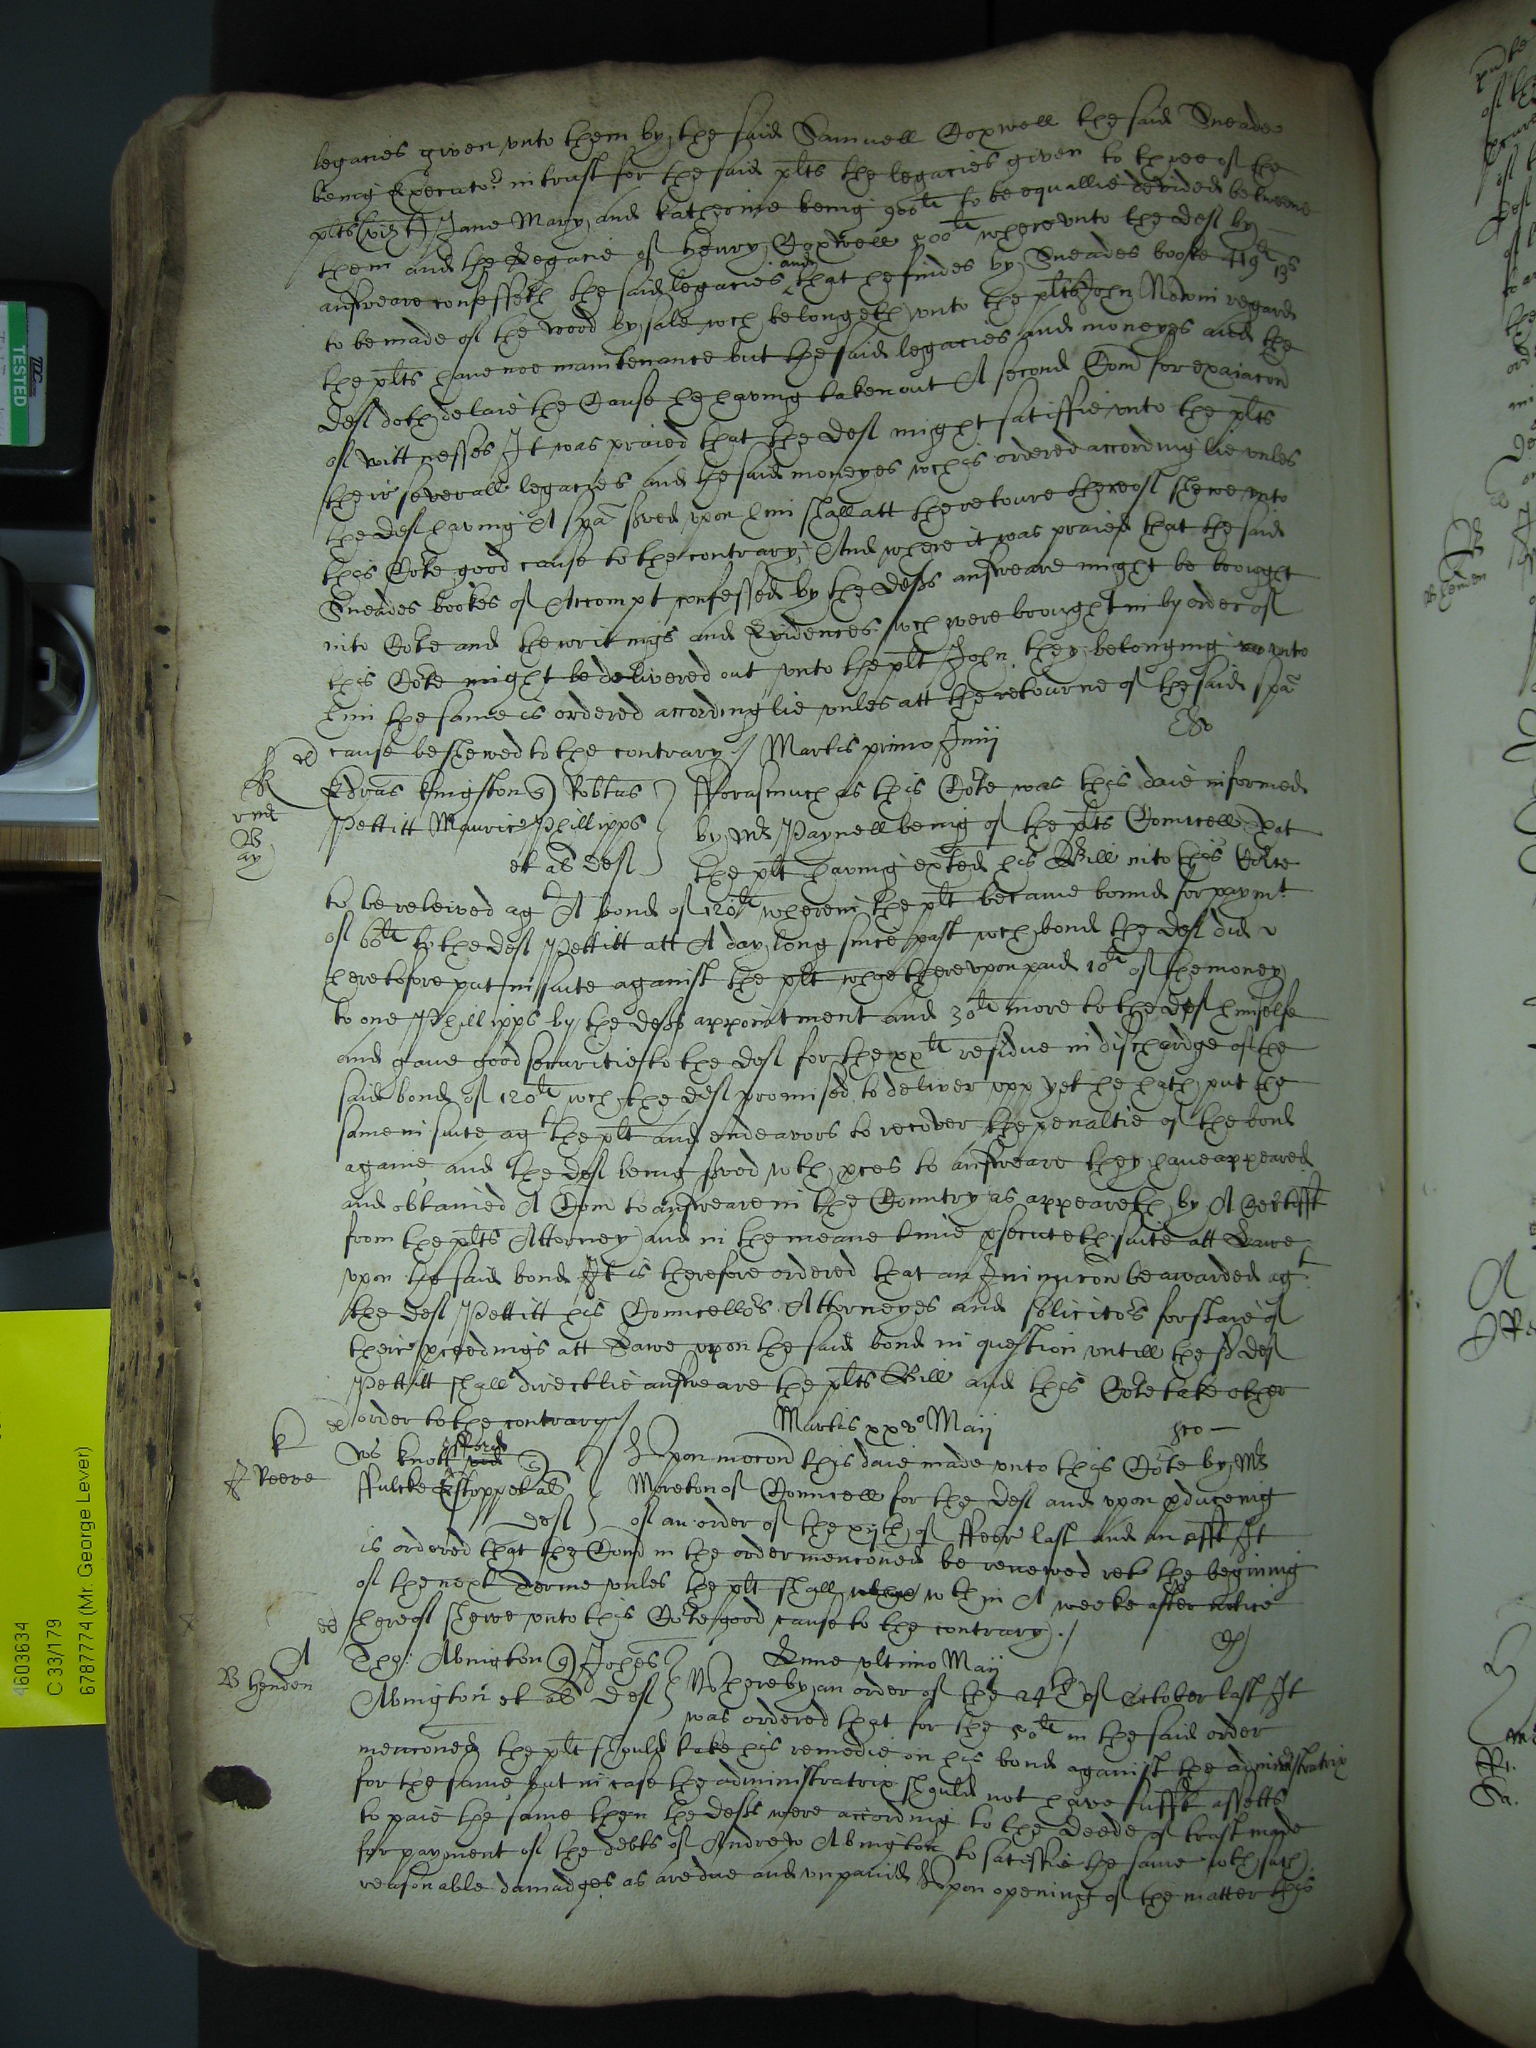 legacies given vnto them by the said Samuell Coxwell the said Sneade
being Executor in trust for the said plts the legacies given to three of the
plts (vizt) Jane Mary and Katherine being 900li to be equallie devided betweene
them and the Legacie of Henry Coxwell 500li wherevnto the deft by
answeare confesseth the said legacies and that he findes by Sneades booke 419li 13s
to be made of the wood by sale wch belongeth vnto the plt John Now in regard
the plts have noe maintenance but the said legacies and moneyes and the
deft doth delaie the Cause he having taken out A second Com for exaiacon
of wittnesses It was praied that the deft might satisfie vnto the plts
their severall legacies and the said moneyes wch is ordered accordinglie vnles
the deft having A spa served vpon him shall att the retourne thereof shewe vnto
this Corte good cause to the contrary, And where it was praied that the said
Sneades bookes of Accompt confessed by the defts answeare might be brought
into Corte and the writings and Evidences wch were brought in by order of
this Corte might be delivered out vnto the plt John they belonging vnto
him the same is ordered accordinglie vnles att the retourne of the said spa
cause be shewed to the contrary / Martis primo Junij
Edras Kingston Robtus
Pettitt Maurice Phillipps
et al deft
fforasmuch as this Corte was this daie informed
by Mr Paynell being of the plts Councell That
the plt having exted his Bill into this Corte
to be releived agt A bond of 120li wherein the plt became bound for paymt
of 60li to the deft Pettitt att A day long since past wch bond the deft did
heretofore put in suite against the plt whoe therevpon paid 10li of the money
to one Phillipps by the defts appointment and 30li more to the deft himselfe
and gave good securitie to the deft for the xxli residue in dischardge of the
said bond of 120li wch the deft promised to deliver vpp yet he hath put the
same in suite agt the plt and endeavors to recover the penaltie of the bond
againe and the deft being served wth pces to answeare they have appeared
and obtained A Com to answeare in the Country as appeareth by A Certifft
from the plts Attorney and in the meane time psecuteth suite att Lawe
vpon the said bond It is therefore ordered that an Iniunccon be awarded agt
the deft Pettitt his Councellors Attorneyes and solicitors for staie of
their pceedings att Lawe vpon the said bond in question vntill the sd deft
Pettitt shall directlie answeare the plts Bill and this Corte take other
order to the contrary / Martis xxvo Maij
K
J Keene
Ws Knottsfford
ffulcke
deft
Vpon mocon this daie made vnto this Corte by Mr
Moreton of Councell for the deft and vpon pduceing
of an order of the xijth of ffebr last and an afft It
is ordered that the Com in the order menconed be renewed ret the begining
of the next Terme vnles the plt shall wth in A weeke after notice
hereof shewe vnto this Corte good cause to the contrary. /
A
B Henden
Tho: Abington Johes
Abington et al deft
Lune vltimo Maij
Whereby an order of the 24th of October last It
was ordered that for the 50li in the said order
menconed the plt should take his remedie on his bond against the administratrix
for the same but in case the administratrix should not have suffit assetts
to paie the same then the defts were according to the Deede of trust made
for payment of the debts of Andrew Abington to satisfie the same wth such
reasonable damadges as are due and vnpaid Vpon opening of the matter this
TESTED
4603634
C 33/179
6787774 (Mr. George Lever)